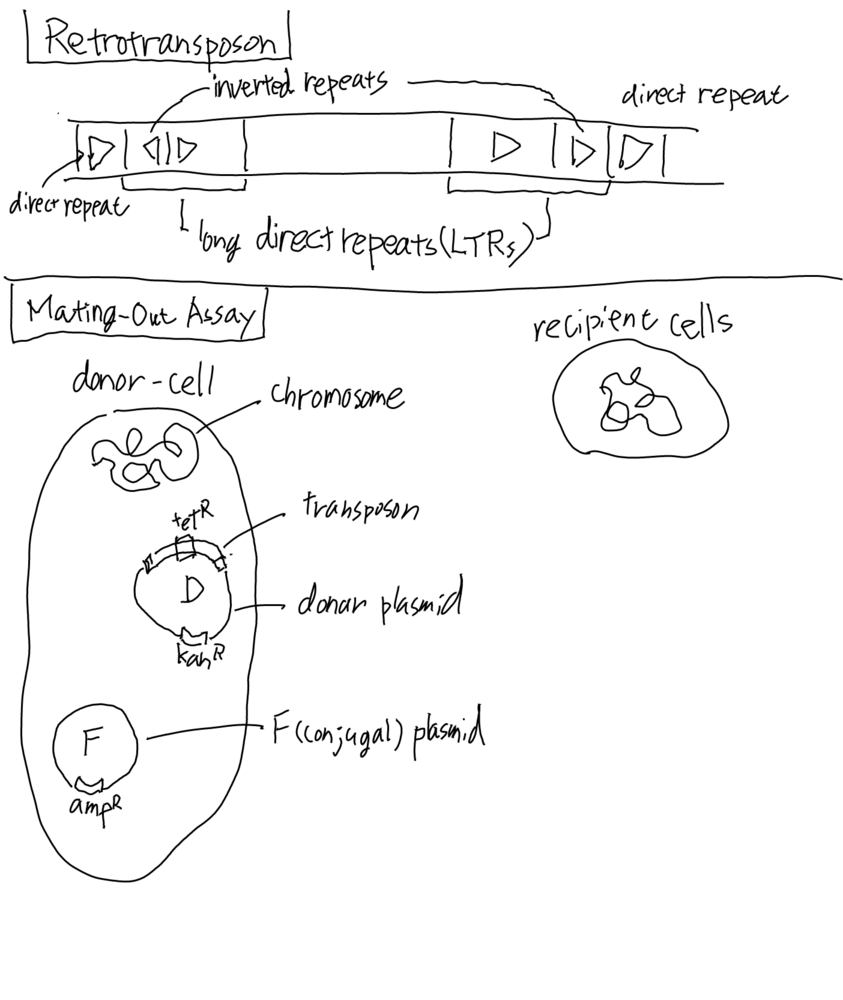 Retrotransposon
inverted repeats
direct repeat
direct repeat
long direct repeats (LTRs)
Mating-Out Assay
recipient cells
donor-cell
chromosome
tetR
transposon
D
donar plasmid
kanR
F
F(conjugal) plasmid
ampR